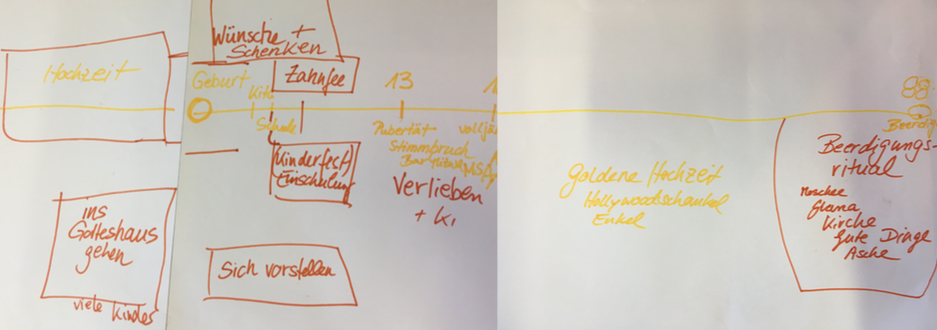 Hochzeit
ins
Gotteshaus
gehen
viele Kinder
Wünsche +
Schenken
Zahnfee
Geburt
Kita
Schule
Kinderfest/
Einschulung
Sich vorstellen
13
Pubertät
Stimmbruch
Verlieben
Goldene Hochzeit
Hollywoodschaukel
Enkel
88
Beerdig
Beerdigungs-
ritual
Moschee
Kirche
Gute Dinge
Asche